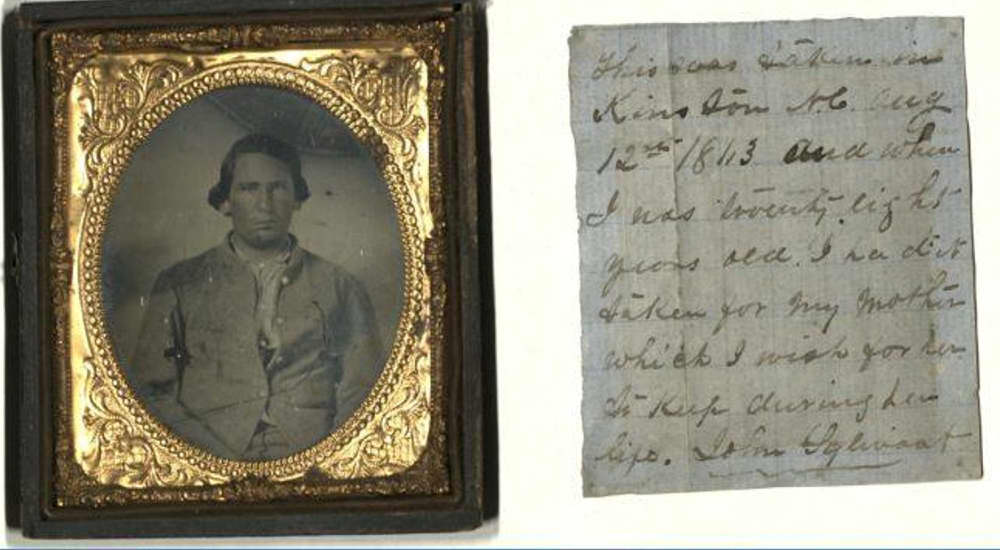 This was taken in
Kinston N.C. Aug
12th 1863 and when
I was twenty eight
years old. I had it
taken for my mother
which I wish for her
to keep during her
life. John